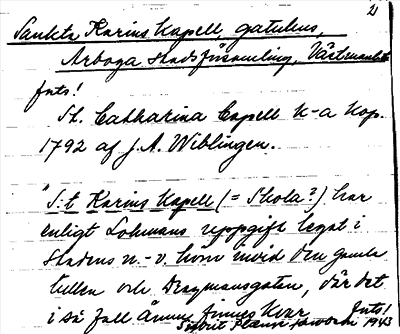 2
Sankta Karins Kapell, gatukors,
Arboga stadsförsamling, Västmanland
foto!
St. Catharina Capell K-a Kop.
1792 af J. A. Wiblingen.
"S:t Karins Kapell (= Skola?) har
enligt Lohmans uppgift legat i
stadens n.-v. hörn invid den gamla
tullen och Dragmansgatan, där det
i så fall ännu finnes kvar
foto!
1943